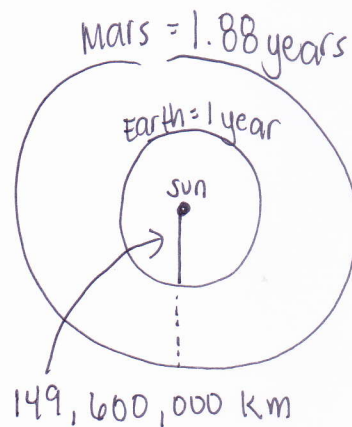 Mars = 1.88 years
Earth = 1 year
sun
149,600,000 km